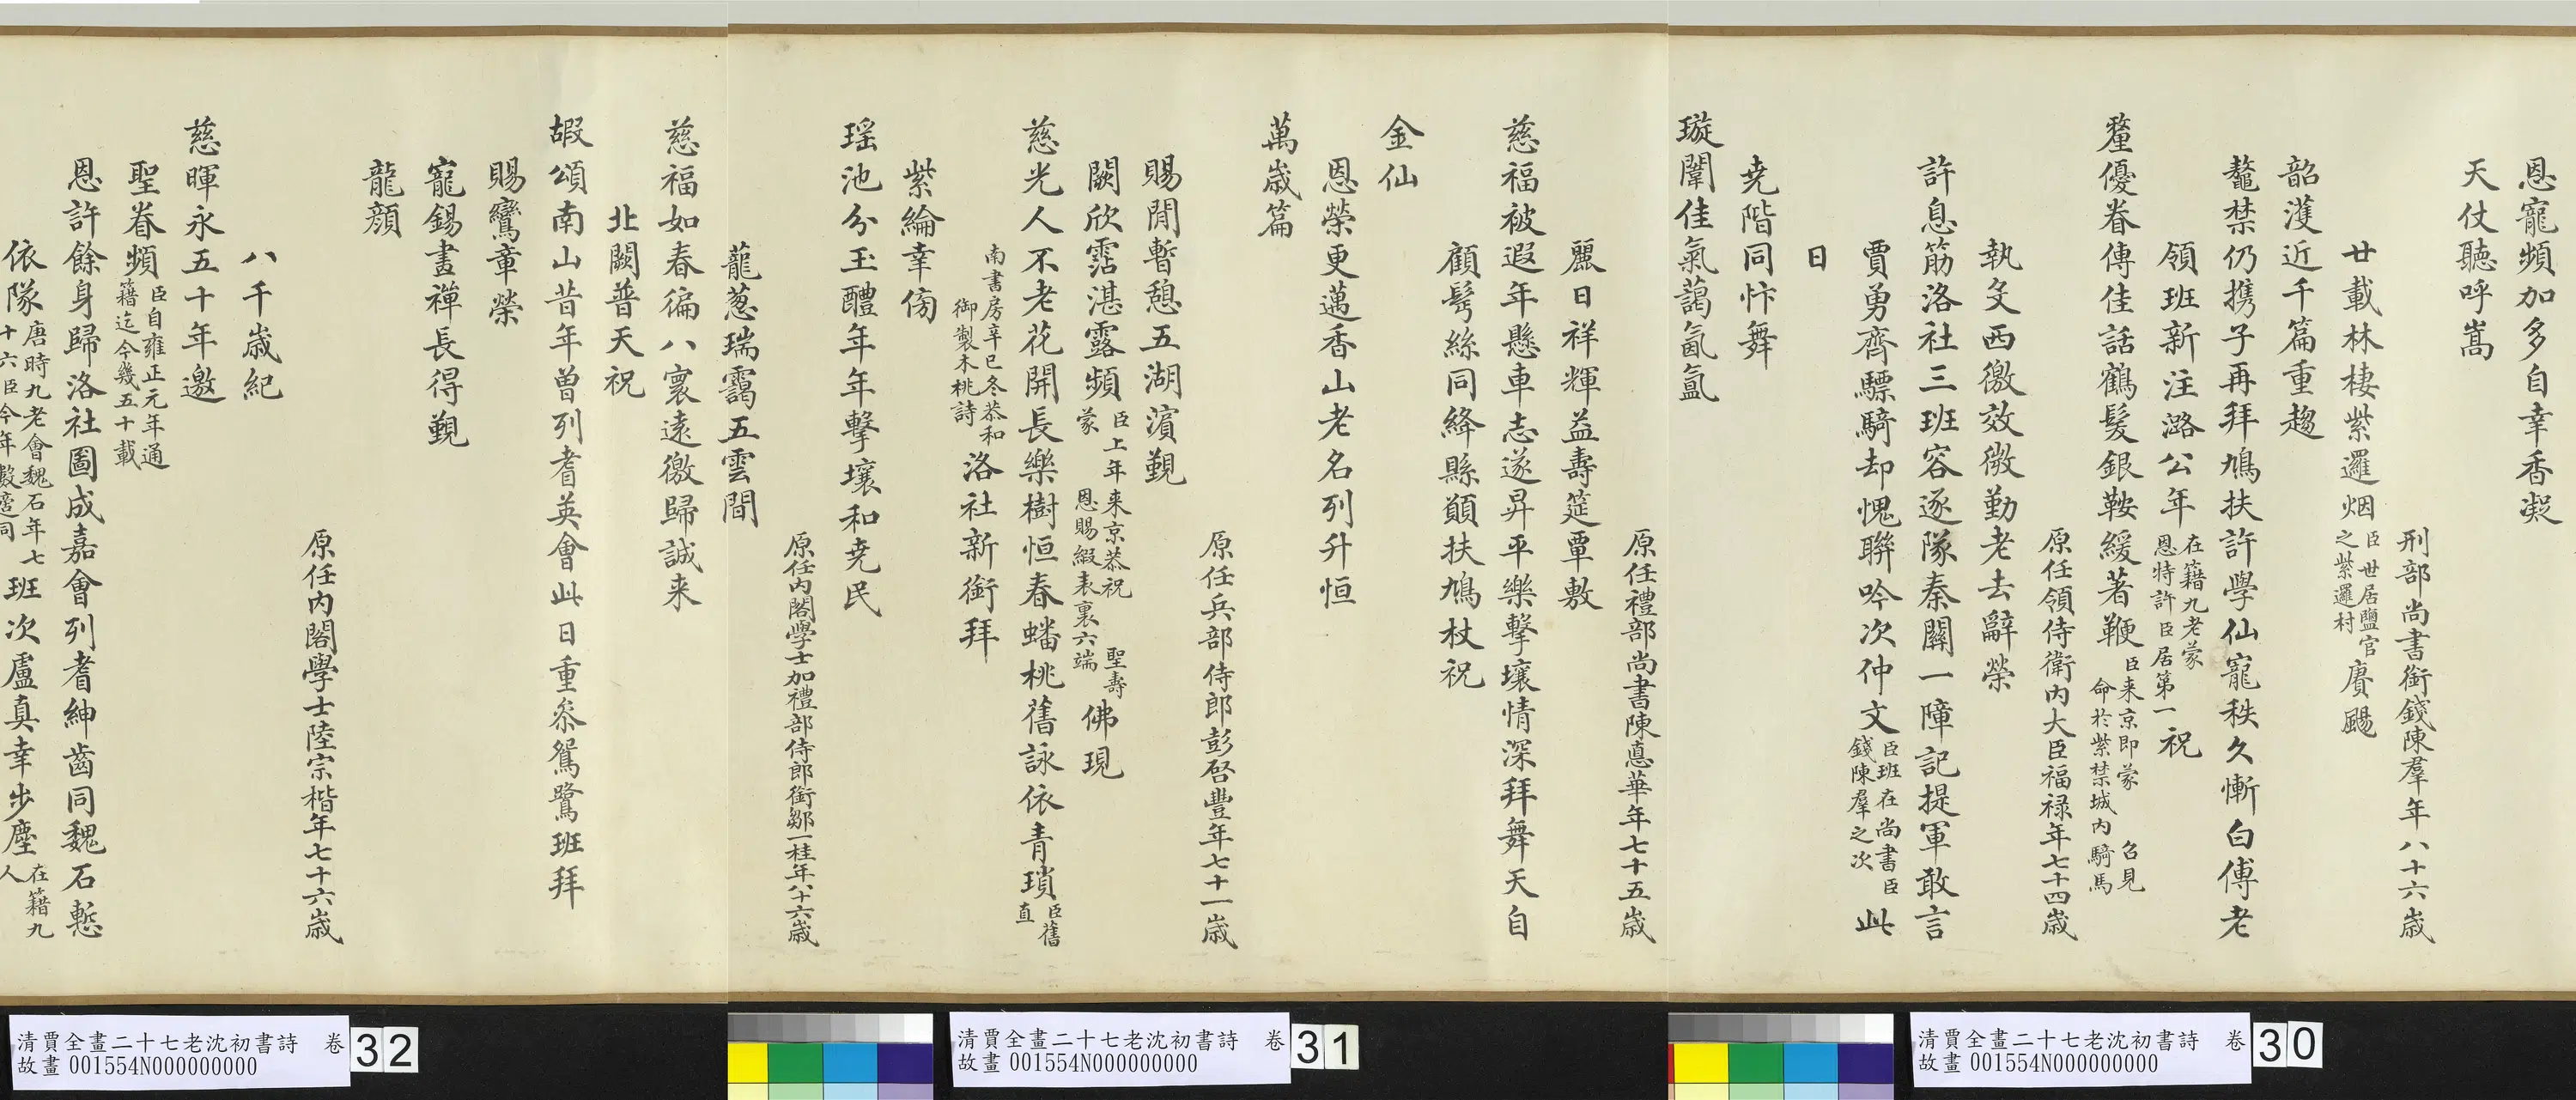 恩寵頻加多自幸香凝
天仗聽呼嵩
刑部尚書銜錢陳羣年八十六歳
廿載林棲紫邏烟臣世居鹽官之紫邏村賡颺
韶濩近千篇重趨
鼇禁仍攜子再拜鳩扶許學仙寵秩久慚白傅老
領班新注潞公年在籍九老蒙恩特許臣居第一祝
釐優眷傳佳話鶴髮銀鞍緩著鞭臣来京即蒙召見命於紫禁城内騎馬
原任領侍衛内大臣福禄年七十四歳
執殳西徼效微勤老去辭榮
許息筋洛社三班容逐隊秦關一障記提軍敢言
賈勇齊驃騎却愧聯吟次仲文臣班在尚書臣錢陳羣之次此
日
堯階同忭舞
璇闈佳氣藹氤氲
原任禮部尚書陳悳華年七十五歳
麗日祥輝益壽筵覃敷
慈福被遐年懸車志遂昇平樂擊壤情深拜舞天自
顧髩絲同絳縣顚扶鳩杖祝
金仙
恩榮更邁香山老名列升恒
萬歳篇
原任兵部侍郎彭啓豐年七十一歳
賜閒暫憩五湖濵覲
闕欣霑湛露頻臣上年来京恭祝聖壽蒙恩賜緞表裏六端佛現
慈光人不老花開長樂樹恒春蟠桃舊詠依青瑣臣舊直
南書房辛巳冬恭和御製木桃詩洛社新銜拜
紫綸幸傍
瑶池分玉醴年年擊壤和堯民
原任内閣學士加禮部侍郎銜鄒一桂年八十六歳
蘢葱瑞靄五雲間
慈福如春徧八寰遠徼歸誠来
北闕普天祝
嘏頌南山昔年曾列耆英會此日重叅鴛鷺班拜
賜鸞章榮
寵錫畫禪長得覲
龍顔
原任内閣學士陸宗楷年七十六歳
八千歳紀
慈暉永五十年邀
聖眷頻臣自雍正元年通籍迄今幾五十載
恩許餘身歸洛社圖成嘉會列耆紳齒同魏石慙
依隊唐時九老會魏石年七十六臣今年數適同班次盧真幸步塵在籍九人
清賈全畫二十七老沈初書詩 卷 30
故畫 001554N000000000
清賈全畫二十七老沈初書詩 卷 31
故畫 001554N000000000
清賈全畫二十七老沈初書詩 卷 32
故畫 001554N000000000